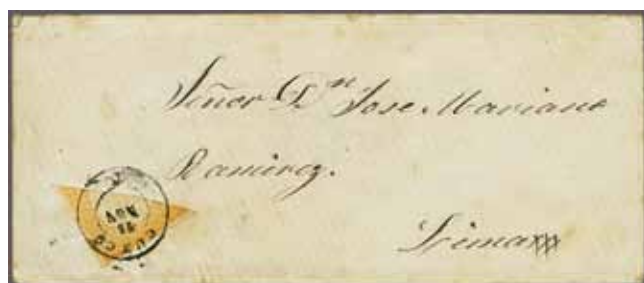 Señor Dn Jose Mariano
Ramirez.
Lima
CUZCO
NOV